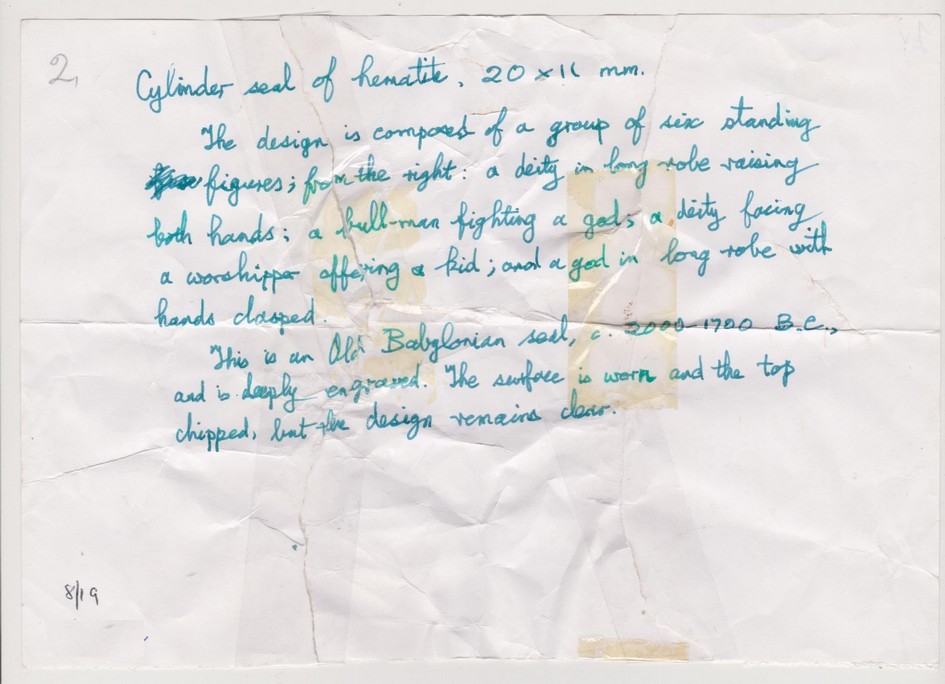 2,
Cylinder seal of hematite, 20 x 11 mm.
The design is composed of a group of six standing
figures; from the right: a deity in long robe raising
both hands; a bull-man fighting a god; a deity facing
a worshipper offering a kid; and a god in long robe with
hands clasped.
This is an Old Babylonian seal, c. 2000-1700 B.C.,
and is deeply engraved. The surface is worn and the top
chipped, but the design remains clear.
8/19